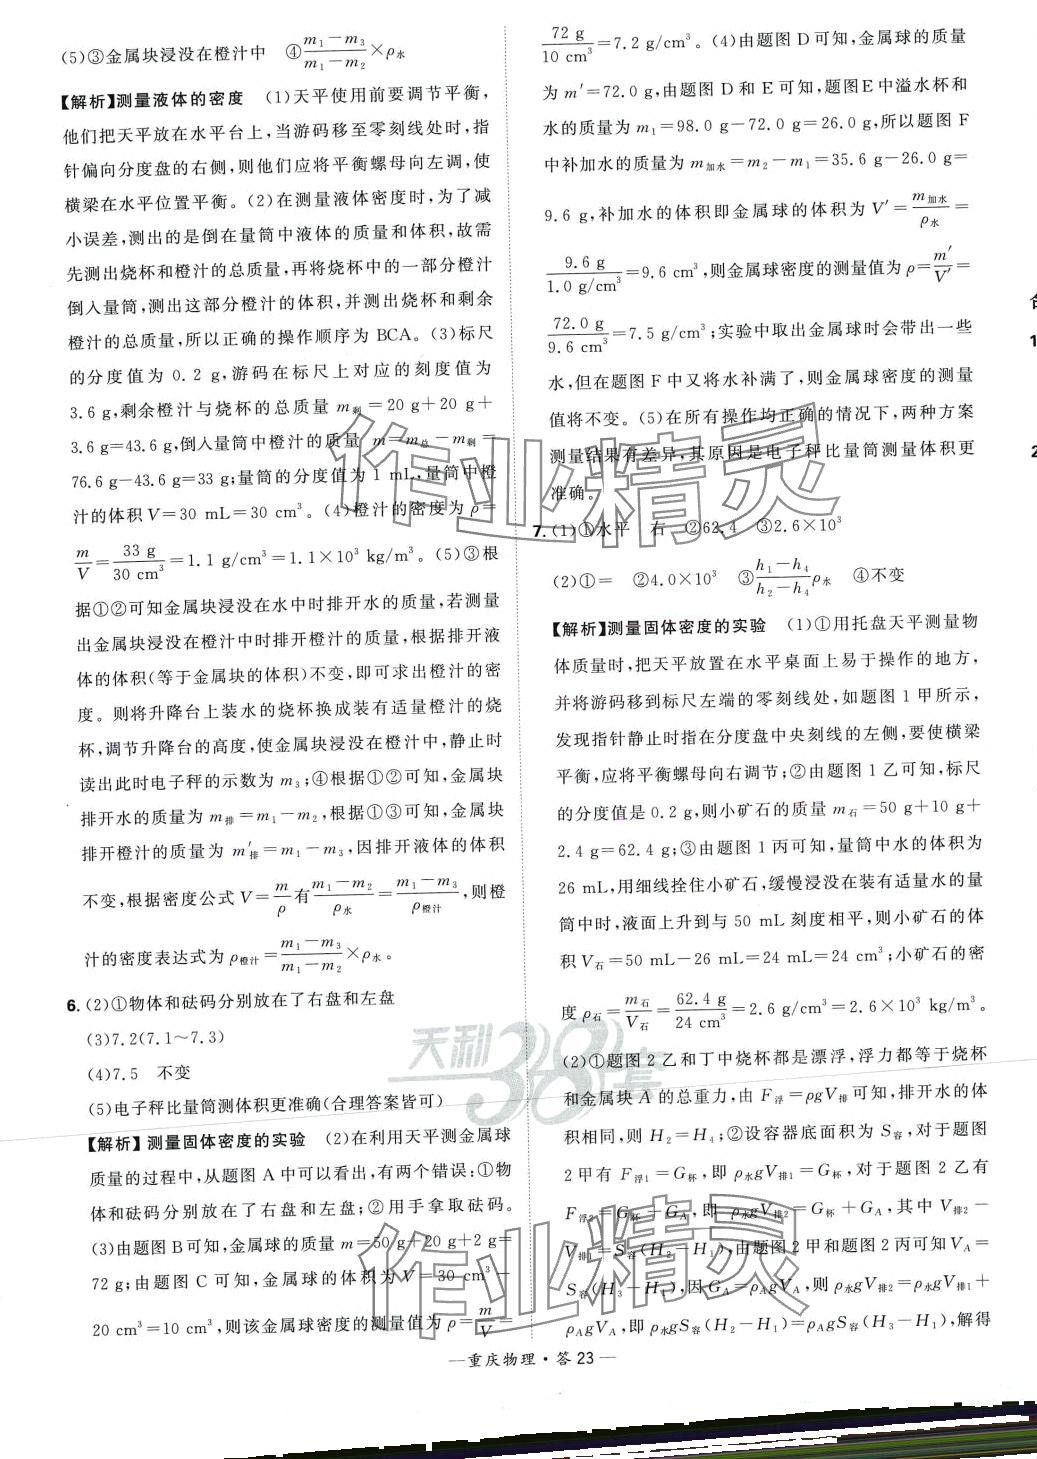 (5)③金属块浸没在橙汁中　④(m₁－m₃)/(m₁－m₂)×ρ水
【解析】测量液体的密度　(1)天平使用前要调节平衡，
他们把天平放在水平台上，当游码移至零刻线处时，指
针偏向分度盘的右侧，则他们应将平衡螺母向左调，使
横梁在水平位置平衡。(2)在测量液体密度时，为了减
小误差，测出的是倒在量筒中液体的质量和体积，故需
先测出烧杯和橙汁的总质量，再将烧杯中的一部分橙汁
倒入量筒，测出这部分橙汁的体积，并测出烧杯和剩余
橙汁的总质量，所以正确的操作顺序为 BCA。(3)标尺
的分度值为 0.2 g，游码在标尺上对应的刻度值为
3.6 g，剩余橙汁与烧杯的总质量 m剩＝20 g＋20 g＋
3.6 g＝43.6 g，倒入量筒中橙汁的质量 m＝m总－m剩＝
76.6 g－43.6 g＝33 g；量筒的分度值为 1 mL，量筒中橙
汁的体积 V＝30 mL＝30 cm³。(4)橙汁的密度为 ρ＝
m/V＝33 g/30 cm³＝1.1 g/cm³＝1.1×10³ kg/m³。(5)③根
据①②可知金属块浸没在水中时排开水的质量，若测量
出金属块浸没在橙汁中时排开橙汁的质量，根据排开液
体的体积(等于金属块的体积)不变，即可求出橙汁的密
度。则将升降台上装水的烧杯换成装有适量橙汁的烧
杯，调节升降台的高度，使金属块浸没在橙汁中，静止时
读出此时电子秤的示数为 m₃；④根据①②可知，金属块
排开水的质量为 m排＝m₁－m₂，根据①③可知，金属块
排开橙汁的质量为 m′排＝m₁－m₃，因排开液体的体积
不变，根据密度公式 V＝m/ρ有(m₁－m₂)/ρ水＝(m₁－m₃)/ρ橙汁，则橙
汁的密度表达式为 ρ橙汁＝(m₁－m₃)/(m₁－m₂)×ρ水。
6. (2)①物体和砝码分别放在了右盘和左盘
(3)7.2(7.1～7.3)
(4)7.5　不变
(5)电子秤比量筒测体积更准确(合理答案皆可)
【解析】测量固体密度的实验　(2)在利用天平测金属球
质量的过程中，从题图 A 中可以看出，有两个错误：①物
体和砝码分别放在了右盘和左盘；②用手拿取砝码。
(3)由题图 B 可知，金属球的质量 m＝50 g＋20 g＋2 g＝
72 g；由题图 C 可知，金属球的体积为 V＝30 cm³－
20 cm³＝10 cm³，则该金属球密度的测量值为 ρ＝m/V＝
72 g/10 cm³＝7.2 g/cm³。(4)由题图 D 可知，金属球的质量
为 m′＝72.0 g，由题图 D 和 E 可知，题图 E 中溢水杯和
水的质量为 m₁＝98.0 g－72.0 g＝26.0 g，所以题图 F
中补加水的质量为 m加水＝m₂－m₁＝35.6 g－26.0 g＝
9.6 g，补加水的体积即金属球的体积为 V′＝m加水/ρ水＝
9.6 g/1.0 g/cm³＝9.6 cm³，则金属球密度的测量值为 ρ＝m′/V′＝
72.0 g/9.6 cm³＝7.5 g/cm³；实验中取出金属球时会带出一些
水，但在题图 F 中又将水补满了，则金属球密度的测量
值将不变。(5)在所有操作均正确的情况下，两种方案
测量结果有差异，其原因是电子秤比量筒测量体积更
准确。
7. (1)①水平　右　②62.4　③2.6×10³
(2)①＝　②4.0×10³　③(h₁－h₄)/(h₂－h₄)ρ水　④不变
【解析】测量固体密度的实验　(1)①用托盘天平测量物
体质量时，把天平放置在水平桌面上易于操作的地方，
并将游码移到标尺左端的零刻线处，如题图 1 甲所示，
发现指针静止时指在分度盘中央刻线的左侧，要使横梁
平衡，应将平衡螺母向右调节；②由题图 1 乙可知，标尺
的分度值是 0.2 g，则小矿石的质量 m石＝50 g＋10 g＋
2.4 g＝62.4 g；③由题图 1 丙可知，量筒中水的体积为
26 mL，用细线拴住小矿石，缓慢浸没在装有适量水的量
筒中时，液面上升到与 50 mL 刻度相平，则小矿石的体
积 V石＝50 mL－26 mL＝24 mL＝24 cm³；小矿石的密
度 ρ石＝m石/V石＝62.4 g/24 cm³＝2.6 g/cm³＝2.6×10³ kg/m³。
(2)①题图 2 乙和丁中烧杯都是漂浮，浮力都等于烧杯
和金属块 A 的总重力，由 F浮＝ρgV排 可知，排开水的体
积相同，则 H₂＝H₄；②设容器底面积为 S容，对于题图
2 甲有 F浮1＝G杯，即 ρ水gV排1＝G杯，对于题图 2 乙有
F浮2＝G杯－GA，即 ρ水gV排2＝G杯＋GA，其中 V排2－
V排1＝S容(H₂－H₁)，由题图 2 甲和题图 2 丙可知 VA＝
S容(H₃－H₁)，因 GA＝ρAgVA，则 ρ水gV排2＝ρ水gV排1＋
ρAgVA，即 ρ水gS容(H₂－H₁)＝ρAgS容(H₃－H₁)，解得
—重庆物理·答 23—
作业精灵
天利38套
作业精灵